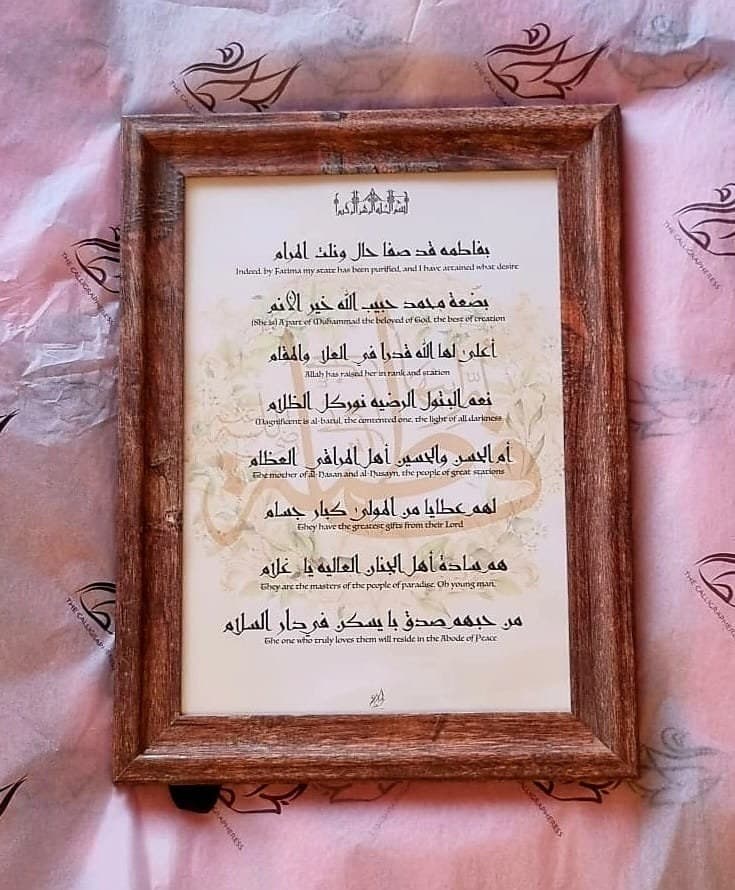 بسم الله الرحمن الرحيم
بفاطمه قد صفا حال ونلت المرام
Indeed, by Fatima my state has been purified, and I have attained what desire
بضعة محمد حبيب الله خير الانم
(She is) A part of Muhammad the beloved of God, the best of creation
أعلى لها الله قدرا في العلا والمقام
Allah has raised her in rank and station
نعم البتول الرضيه نور كل الظلام
Magnificent is al-batul, the contented one, the light of all darkness
أم الحسن والحسين أهل المراقي العظام
The mother of al-Hasan and al-Husayn, the people of great stations
لهم عطايا من المولى كبار جسام
They have the greatest gifts from their Lord
هم سادة أهل الجنان العاليه يا غلام
They are the masters of the people of paradise, Oh young man,
من حبهم صدق با يسكن في دار السلام
The one who truly loves them will reside in the Abode of Peace
فاطمة
THE CALLIGRAPHERESS
THE CALLIGRAPHERESS
THE CALLIGRAPHERESS
THE CALLIGRAPHERESS
THE CALLIGRAPHERESS
THE CALLIGRAPHERESS
THE CALLIGRAPHERESS
THE CALLIGRAPHERESS